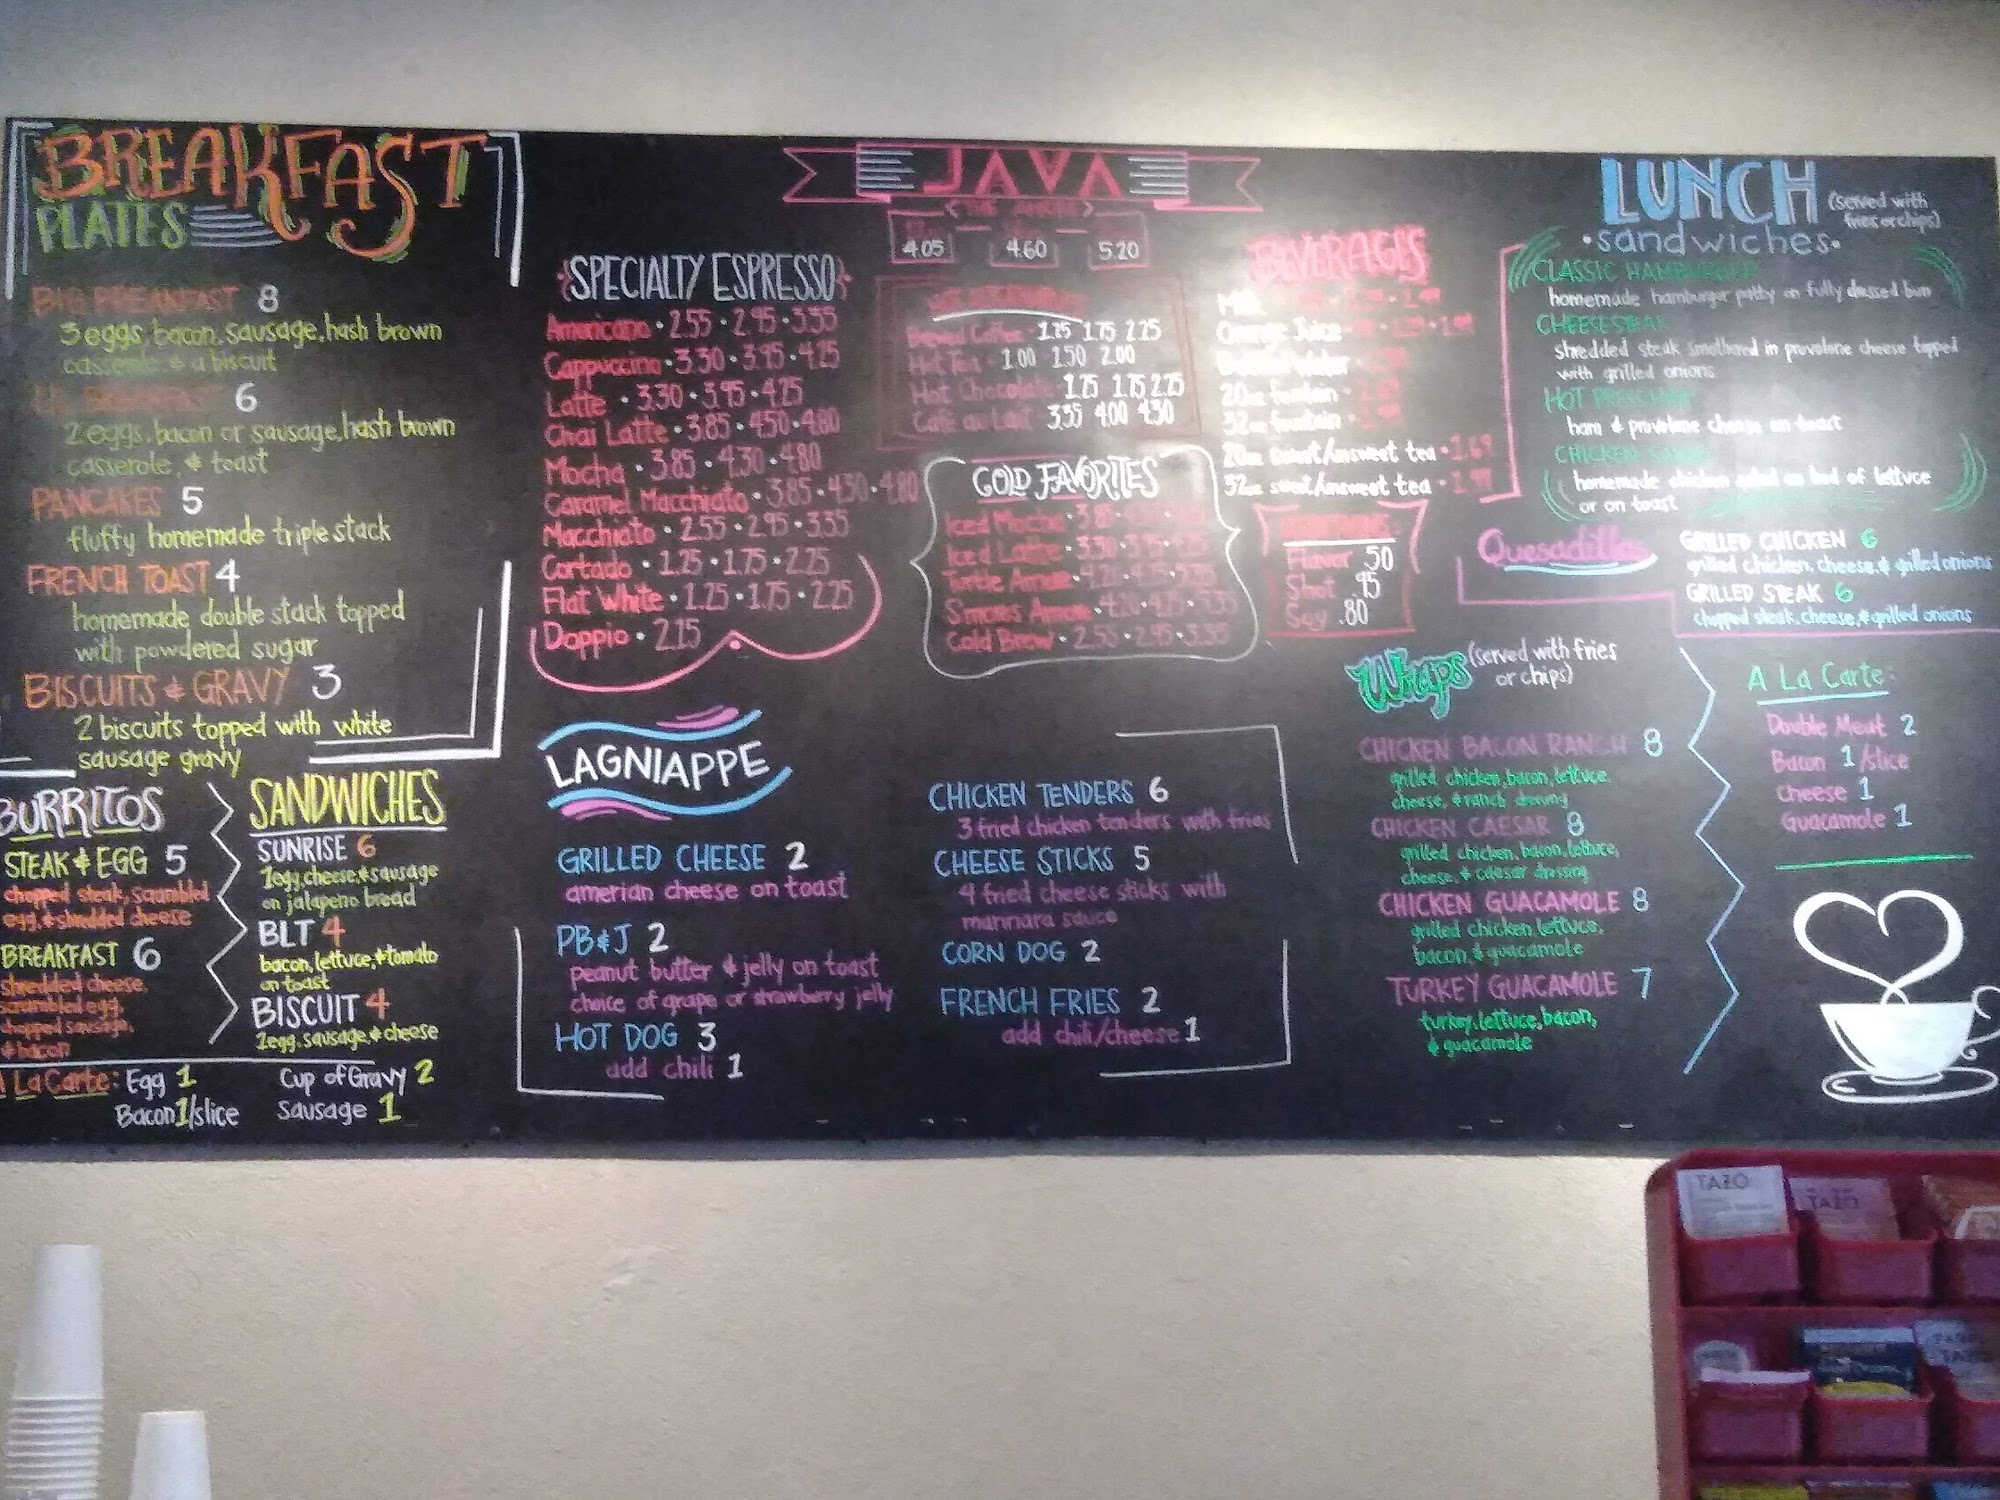 BREAKFAST
PLATES
BIG BREAKFAST 8
3 eggs, bacon, sausage, hash brown
casserole, & a biscuit
6
2 eggs, bacon or sausage, hash brown
casserole, & toast
PANCAKES 5
fluffy homemade triple stack
FRENCH TOAST 4
homemade double stack topped
with powdered sugar
BISCUITS & GRAVY 3
2 biscuits topped with white
sausage gravy
BURRITOS
STEAK & EGG 5
chopped steak, scrambled
egg, & shredded cheese
BREAKFAST 6
shredded cheese,
scrambled egg,
chopped sausage,
& bacon
SANDWICHES
SUNRISE 6
1 egg, cheese, & sausage
on jalapeno bread
BLT 4
bacon, lettuce, & tomato
on toast
BISCUIT 4
1 egg, sausage, & cheese
A La Carte: Egg 1
Bacon 1/slice
Cup of Gravy 2
Sausage 1
JAVA
4.05 4.60 5.20
SPECIALTY ESPRESSO
Americano • 2.55 • 2.95 • 3.35
Cappuccino • 3.30 • 3.95 • 4.25
Latte • 3.30 • 3.95 • 4.25
Chai Latte • 3.85 • 4.50 • 4.80
Mocha • 3.85 • 4.30 • 4.80
Caramel Macchiato • 3.85 • 4.30 • 4.80
Macchiato • 2.55 • 2.95 • 3.35
Cortado • 1.25 • 1.75 • 2.25
Flat White • 1.25 • 1.75 • 2.25
Doppio • 2.15
Brewed Coffee • 1.25 1.75 2.25
Hot Tea • 1.00 1.50 2.00
Hot Chocolate 1.25 1.75 2.25
Cafe au Lait 3.35 4.00 4.30
COLD FAVORITES
Iced Mocha • 3.85
Iced Latte • 3.30
Turtle
S'mores
Cold Brew • 2.55 • 2.95 • 3.35
BEVERAGES
Milk
Orange Juice
Water
20oz fountain
32oz fountain
20oz sweet/unsweet tea • 1.69
32oz sweet/unsweet tea • 1.99
Flavor .50
Shot .95
Soy .80
LAGNIAPPE
GRILLED CHEESE 2
amerian cheese on toast
PB&J 2
peanut butter & jelly on toast
choice of grape or strawberry jelly
HOT DOG 3
add chili 1
CHICKEN TENDERS 6
3 fried chicken tenders with fries
CHEESE STICKS 5
4 fried cheese sticks with
marinara sauce
CORN DOG 2
FRENCH FRIES 2
add chili/cheese 1
LUNCH (served with
fries or chips)
• sandwiches •
CLASSIC HAMBURGER
homemade hamburger patty on fully dressed bun
CHEESESTEAK
shredded steak smothered in provolone cheese topped
with grilled onions
HOT
ham & provolone cheese on toast
CHICKEN SALAD
homemade chicken salad on bed of lettuce
or on toast
Quesadillas
GRILLED CHICKEN 6
grilled chicken, cheese, & grilled onions
GRILLED STEAK 6
chopped steak, cheese, & grilled onions
Wraps (served with fries
or chips)
CHICKEN BACON RANCH 8
grilled chicken, bacon, lettuce,
cheese, & ranch dressing
CHICKEN CAESAR 8
grilled chicken, bacon, lettuce,
cheese, & caesar dressing
CHICKEN GUACAMOLE 8
grilled chicken, lettuce,
bacon, & guacamole
TURKEY GUACAMOLE 7
turkey, lettuce, bacon,
& guacamole
A La Carte:
Double Meat 2
Bacon 1/slice
Cheese 1
Guacamole 1
TAZO
TAZO